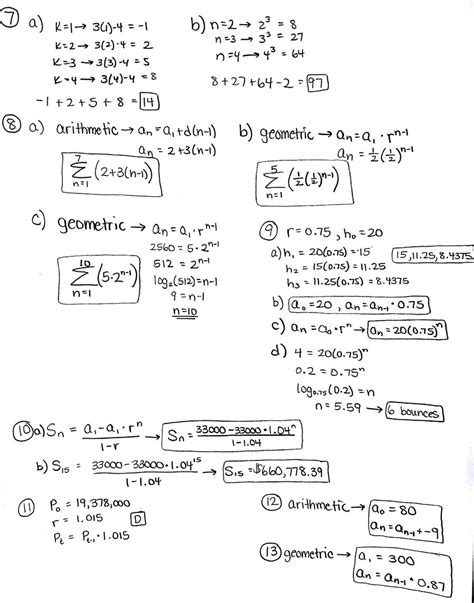 ⑦ a) K=1→ 3(1)-4 = -1
K=2→ 3(2)-4 = 2
K=3 → 3(3)-4 = 5
K=4→ 3(4)-4 = 8
-1 + 2 + 5 + 8 = 14
b) n=2→ 2³ = 8
n=3 → 3³ = 27
n=4→ 4³ = 64
8+27+64-2 = 97
⑧ a) arithmetic → aₙ=a₁+d(n-1)
aₙ = 2+3(n-1)
7
Σ (2+3(n-1))
n=1
b) geometric → aₙ=a₁·rⁿ⁻¹
aₙ = ½(½)ⁿ⁻¹
5
Σ (½(½)ⁿ⁻¹)
n=1
c) geometric → aₙ=a₁·rⁿ⁻¹
2560 = 5·2ⁿ⁻¹
512 = 2ⁿ⁻¹
log₂(512)=n-1
9 = n-1
n=10
10
Σ (5·2ⁿ⁻¹)
n=1
⑨ r=0.75, h₀=20
a) h₁ = 20(0.75)=15
h₂ = 15(0.75) = 11.25
h₃ = 11.25(0.75)=8.4375
15, 11.25, 8.4375
b) a₀=20, aₙ=aₙ₋₁·0.75
c) aₙ=a₀·rⁿ→ aₙ=20(0.75)ⁿ
d) 4 = 20(0.75)ⁿ
0.2 = 0.75ⁿ
log₀.₇₅(0.2) = n
n = 5.59 → 6 bounces
⑩ a) Sₙ = a₁-a₁·rⁿ / 1-r → Sₙ = 33000-33000·1.04ⁿ / 1-1.04
b) S₁₅ = 33000-33000·1.04¹⁵ / 1-1.04 → S₁₅=$660,778.39
⑪ P₀ = 19,378,000
r = 1.015 D
Pₜ = Pₜ₋₁·1.015
⑫ arithmetic → a₀ = 80
aₙ=aₙ₋₁+-9
⑬ geometric → a₁ = 300
aₙ=aₙ₋₁·0.87